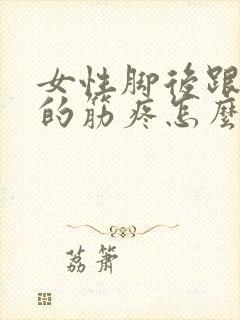 女性脚后跟
的筋疼怎麼
荔箫